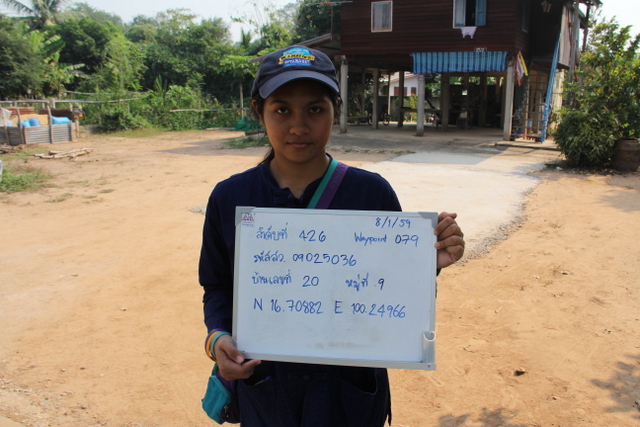 8/1/59
ลำดับที่ 426 Waypoint 079
รหัสสว. 09025036
บ้านเลขที่ 20 หมู่ที่ 9
N 16.70882 E 100.24966